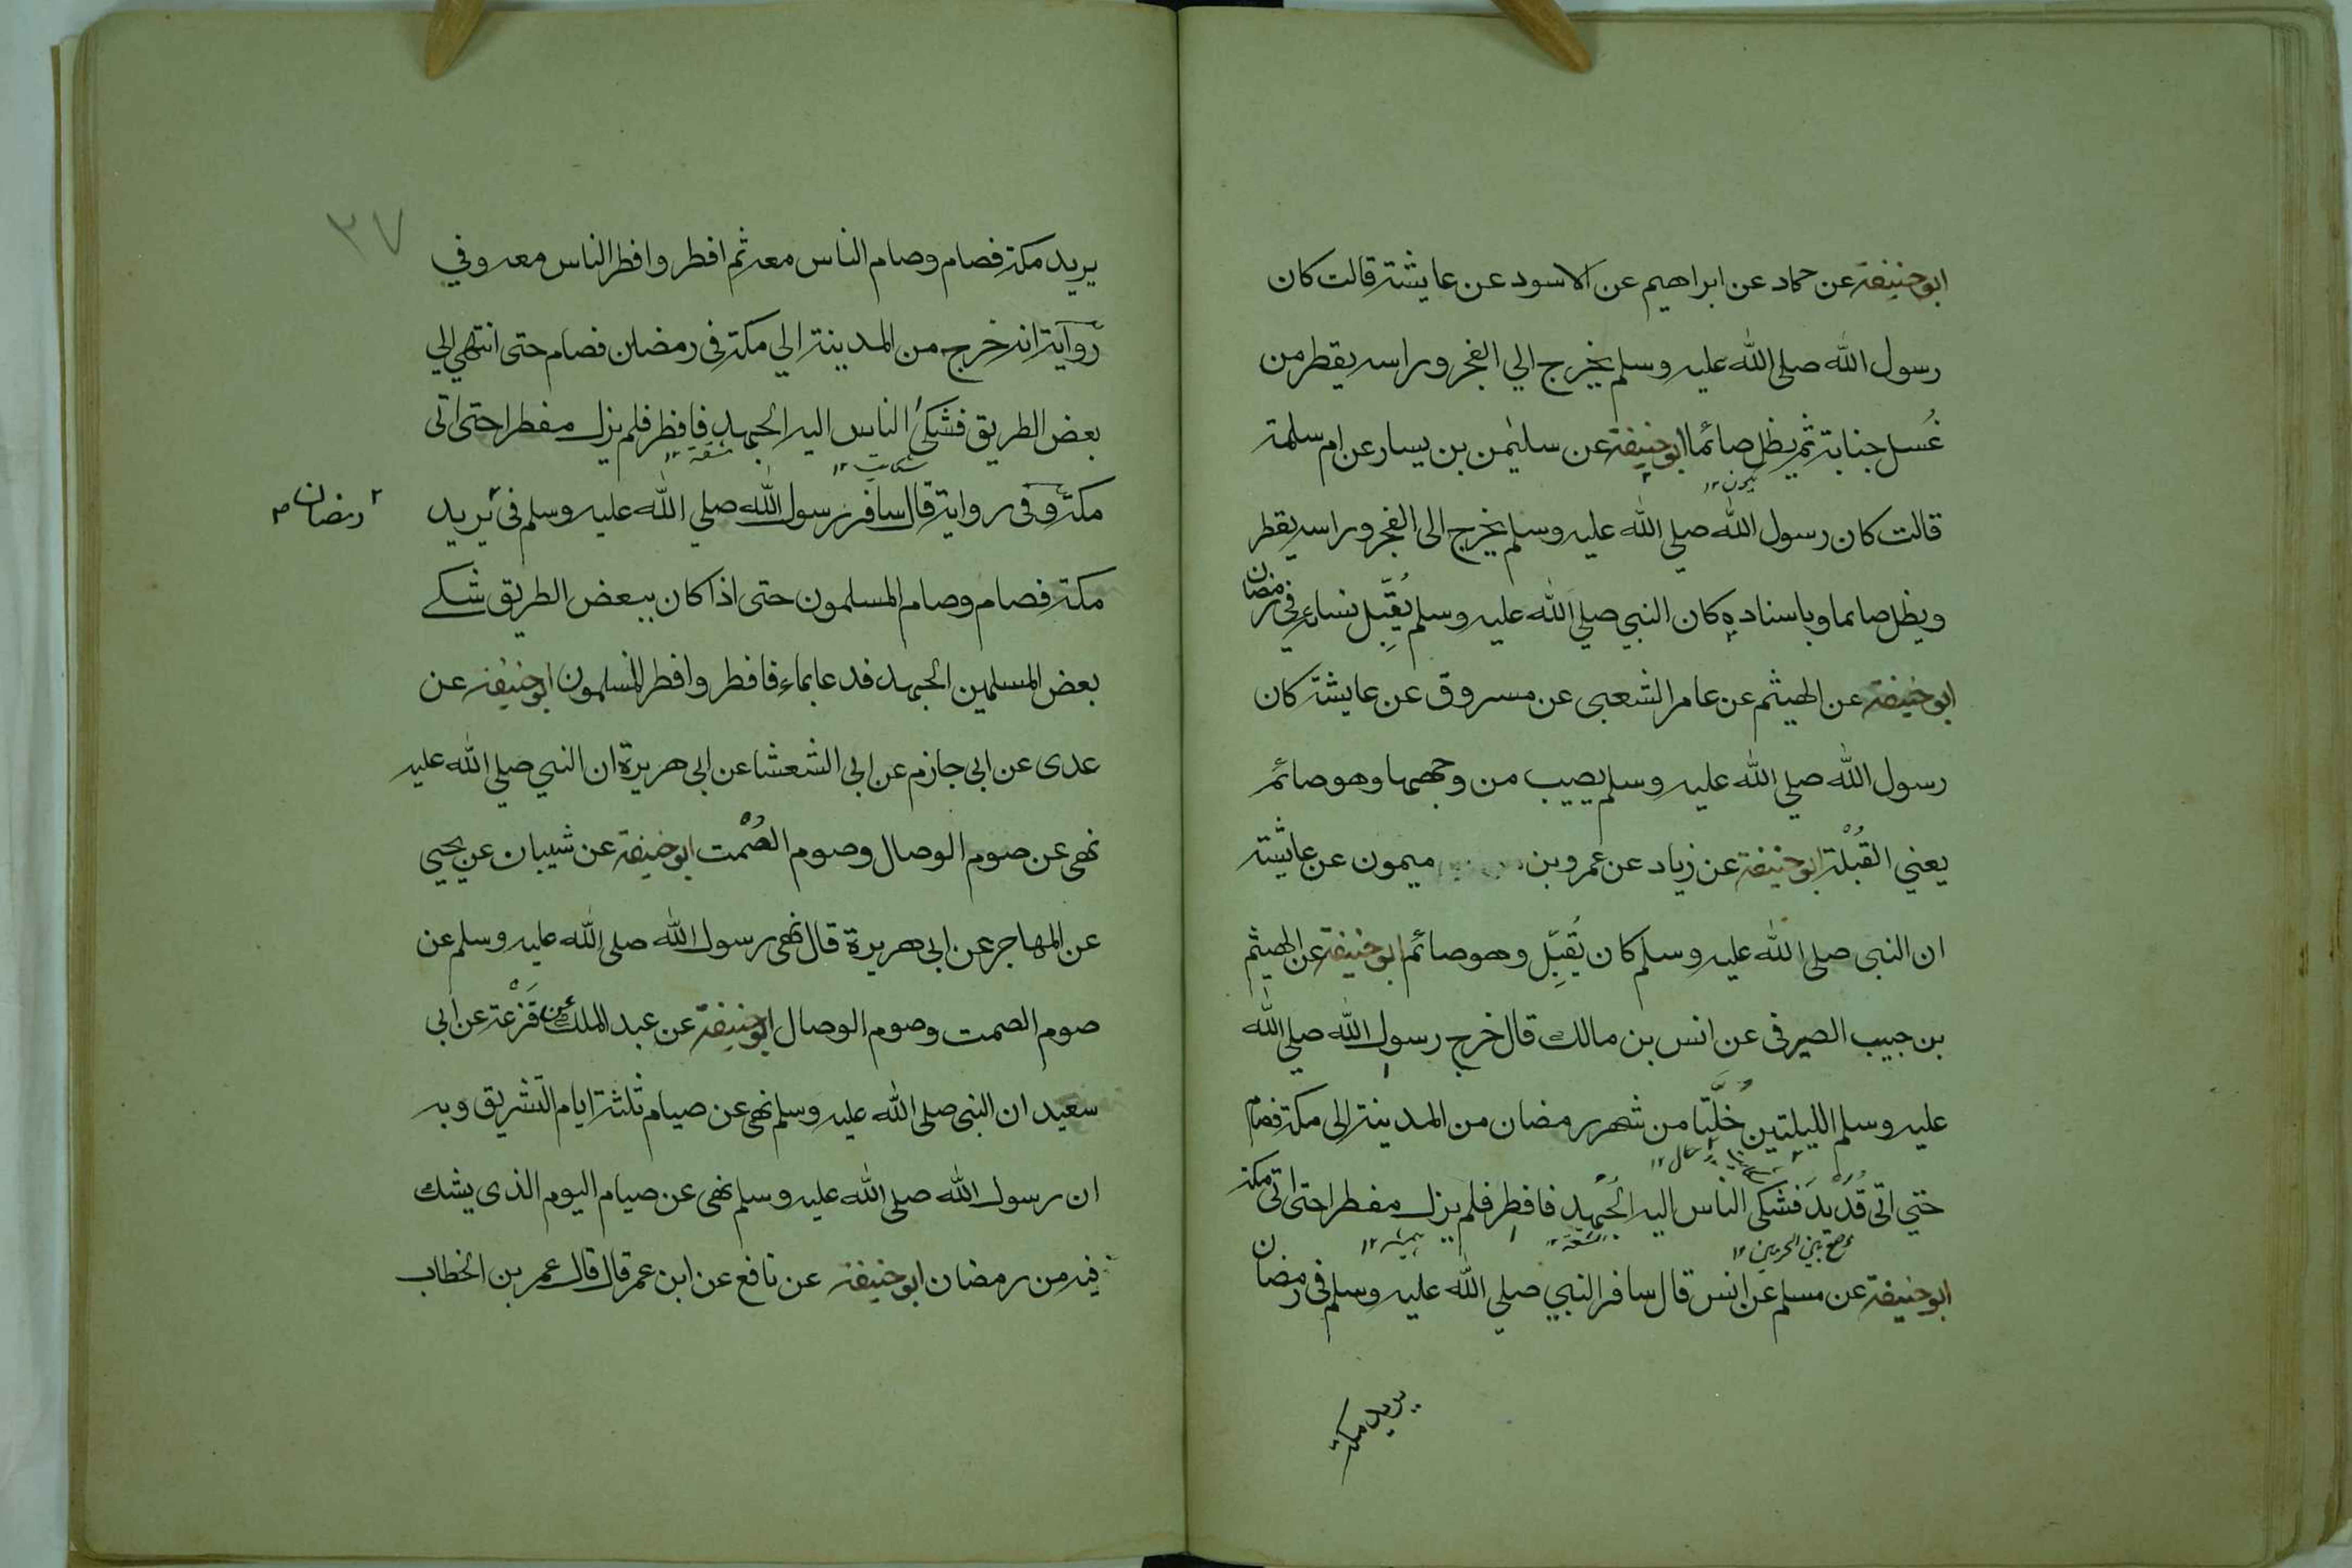 ابو حنيفة عن حماد عن ابراهيم عن الاسود عن عايشة قالت كان
رسول الله صلى الله عليه وسلم يخرج الي الفجر وراسه يقطر من
غُسل جنابة ثم يظل صائما ابو حنيفة عن سليٰمن بن يسار عن ام سلمة
قالت كان رسول الله صلي الله عليه وسلم يخرج الى الفجر وراسه يقطر
ويظل صايما وباسناده كان النبي صلي الله عليه وسلم يُقَبِّل نساءه في رمضان
ابو حنيفة عن الهيثم عن عامر الشعبى عن مسروق عن عايشة كان
رسول الله صلي الله عليه وسلم يصيب من وجهها وهو صائم
يعني القُبْلة ابو حنيفة عن زياد عن عمرو بن ميمون عن عايشة
ان النبى صلى الله عليه وسلم كان يُقَبِّل وهو صائم ابو حنيفة عن الهيثم
بن حبيب الصيرفى عن انس بن مالك قال خرج رسول الله صلي الله
عليه وسلم لليلتين خلتا من شهر رمضان من المدينة الى مكة فصام
حتي اتى قُدَيْدَ فشكى الناس اليه الجُهد فافطر فلم يزل مفطرا حتى اتى مكة
موضع بين الحرمين ١٢
ابو حنيفة عن مسلم عن انس قال سافر النبي صلي الله عليه وسلم فى رمضان
يريد مكة
٣٧
يريد مكة فصام وصام الناس معه ثم افطر وافطر الناس معه وفي
رواية انه خرج من المدينة الي مكة فى رمضان فصام حتى انتهي الي
بعض الطريق فشكى الناس اليه الجهد فافطر فلم يزل مفطرا حتى اتى
مشقة ١٢
شكايت ١٢
مكة وفى رواية قال سافر رسول الله صلي الله عليه وسلم فى يريد
رمضان
مكة فصام وصام المسلمون حتى اذا كان ببعض الطريق شكے
بعض المسلمين الجهد فدعا بماء فافطر وافطر المسلمون ابو حنيفة عن
عدى عن ابى حازم عن ابى الشعشا عن ابى هريرة ان النبي صلي الله عليه
نهى عن صوم الوصال وصوم الصُمْت ابو حنيفة عن شيبان عن يحيي
عن المهاجر عن ابى هريرة قال نهى رسول الله صلى الله عليه وسلم عن
صوم الصمت وصوم الوصال ابو حنيفة عن عبد الملك عن قَزْعة عن ابى
سعيد ان النبى صلى الله عليه وسلم نهى عن صيام ثلثة ايام التشريق وبه
ان رسول الله صلى الله عليه وسلم نهى عن صيام اليوم الذى يشك
فيه من رمضان ابو حنيفة عن نافع عن ابن عمر قال قال عمر بن الخطاب